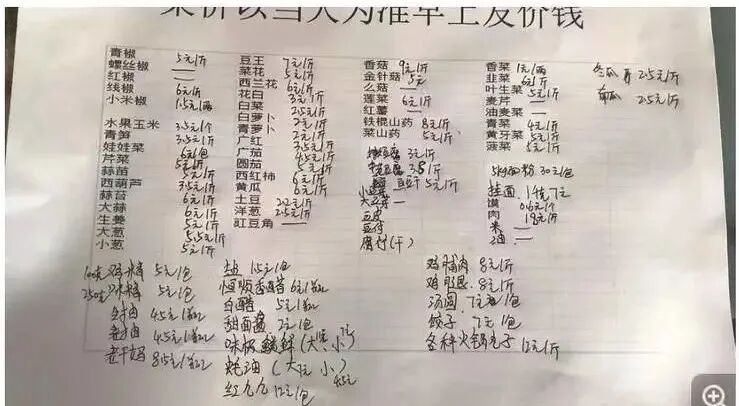 菜价以当天为准早上发价钱
青椒 5元1斤
螺丝椒 —
红椒 —
线椒 6元1斤
小米椒 15元1两
水果玉米 3.5元1个
青笋 3.5元1斤
娃娃菜 6元1包
芹菜 5元1斤
蒜苗 5元1斤
西葫芦 3.5元1斤
蒜苔 6元1斤
大蒜 6元1斤
生姜 5元1斤
大葱 5.5元1斤
小葱 5元1斤
豆王 7元1斤
菜花 5元1斤
西兰花 6元1斤
花白 3元1斤
白菜 2.5元1斤
白萝卜 2元1斤
青萝卜 2元1斤
广红 2元1斤
广茄 4.5元1斤
圆茄 5元1斤
西红柿 6元1斤
黄瓜 6元1斤
土豆 2.2元1斤
洋葱 2.5元1斤
豇豆角 —
香菇 9元1斤
金针菇 5元
么菇 —
莲菜 6元1斤
红薯
铁棍山药 8元1斤
菜山药 5元1斤
3元1斤
豆干 5元1斤
豆皮
豆付
腐竹(干)
香菜 1元1两
韭菜 6元1斤
叶生菜 5元1斤
麦芹 —
油麦菜 —
青菜 4元1斤
黄牙菜 5元1斤
菠菜 5元1斤
5kg面粉 30元1包
挂面 1千克7元
馍 0.6元1个
肉 18元1斤
米 —
油 —
冬瓜 2.5元1斤
南瓜 2.5元1斤
鸡精 5元1包
味精 5元1包
生抽 4.5元1袋
老抽 4.5元1袋
老干妈 8.5元1瓶
盐 1.5元1包
恒顺香醋 6元1袋
白醋 5元1袋
甜面酱 2元1包
味极鲜(大 小)
蚝油(大 小)
红九九 12元1包
鸡脯肉 8元1斤
鸡腿 8元1斤
汤圆 7元1包
饺子 7元1包
各种火锅丸子 12元1斤